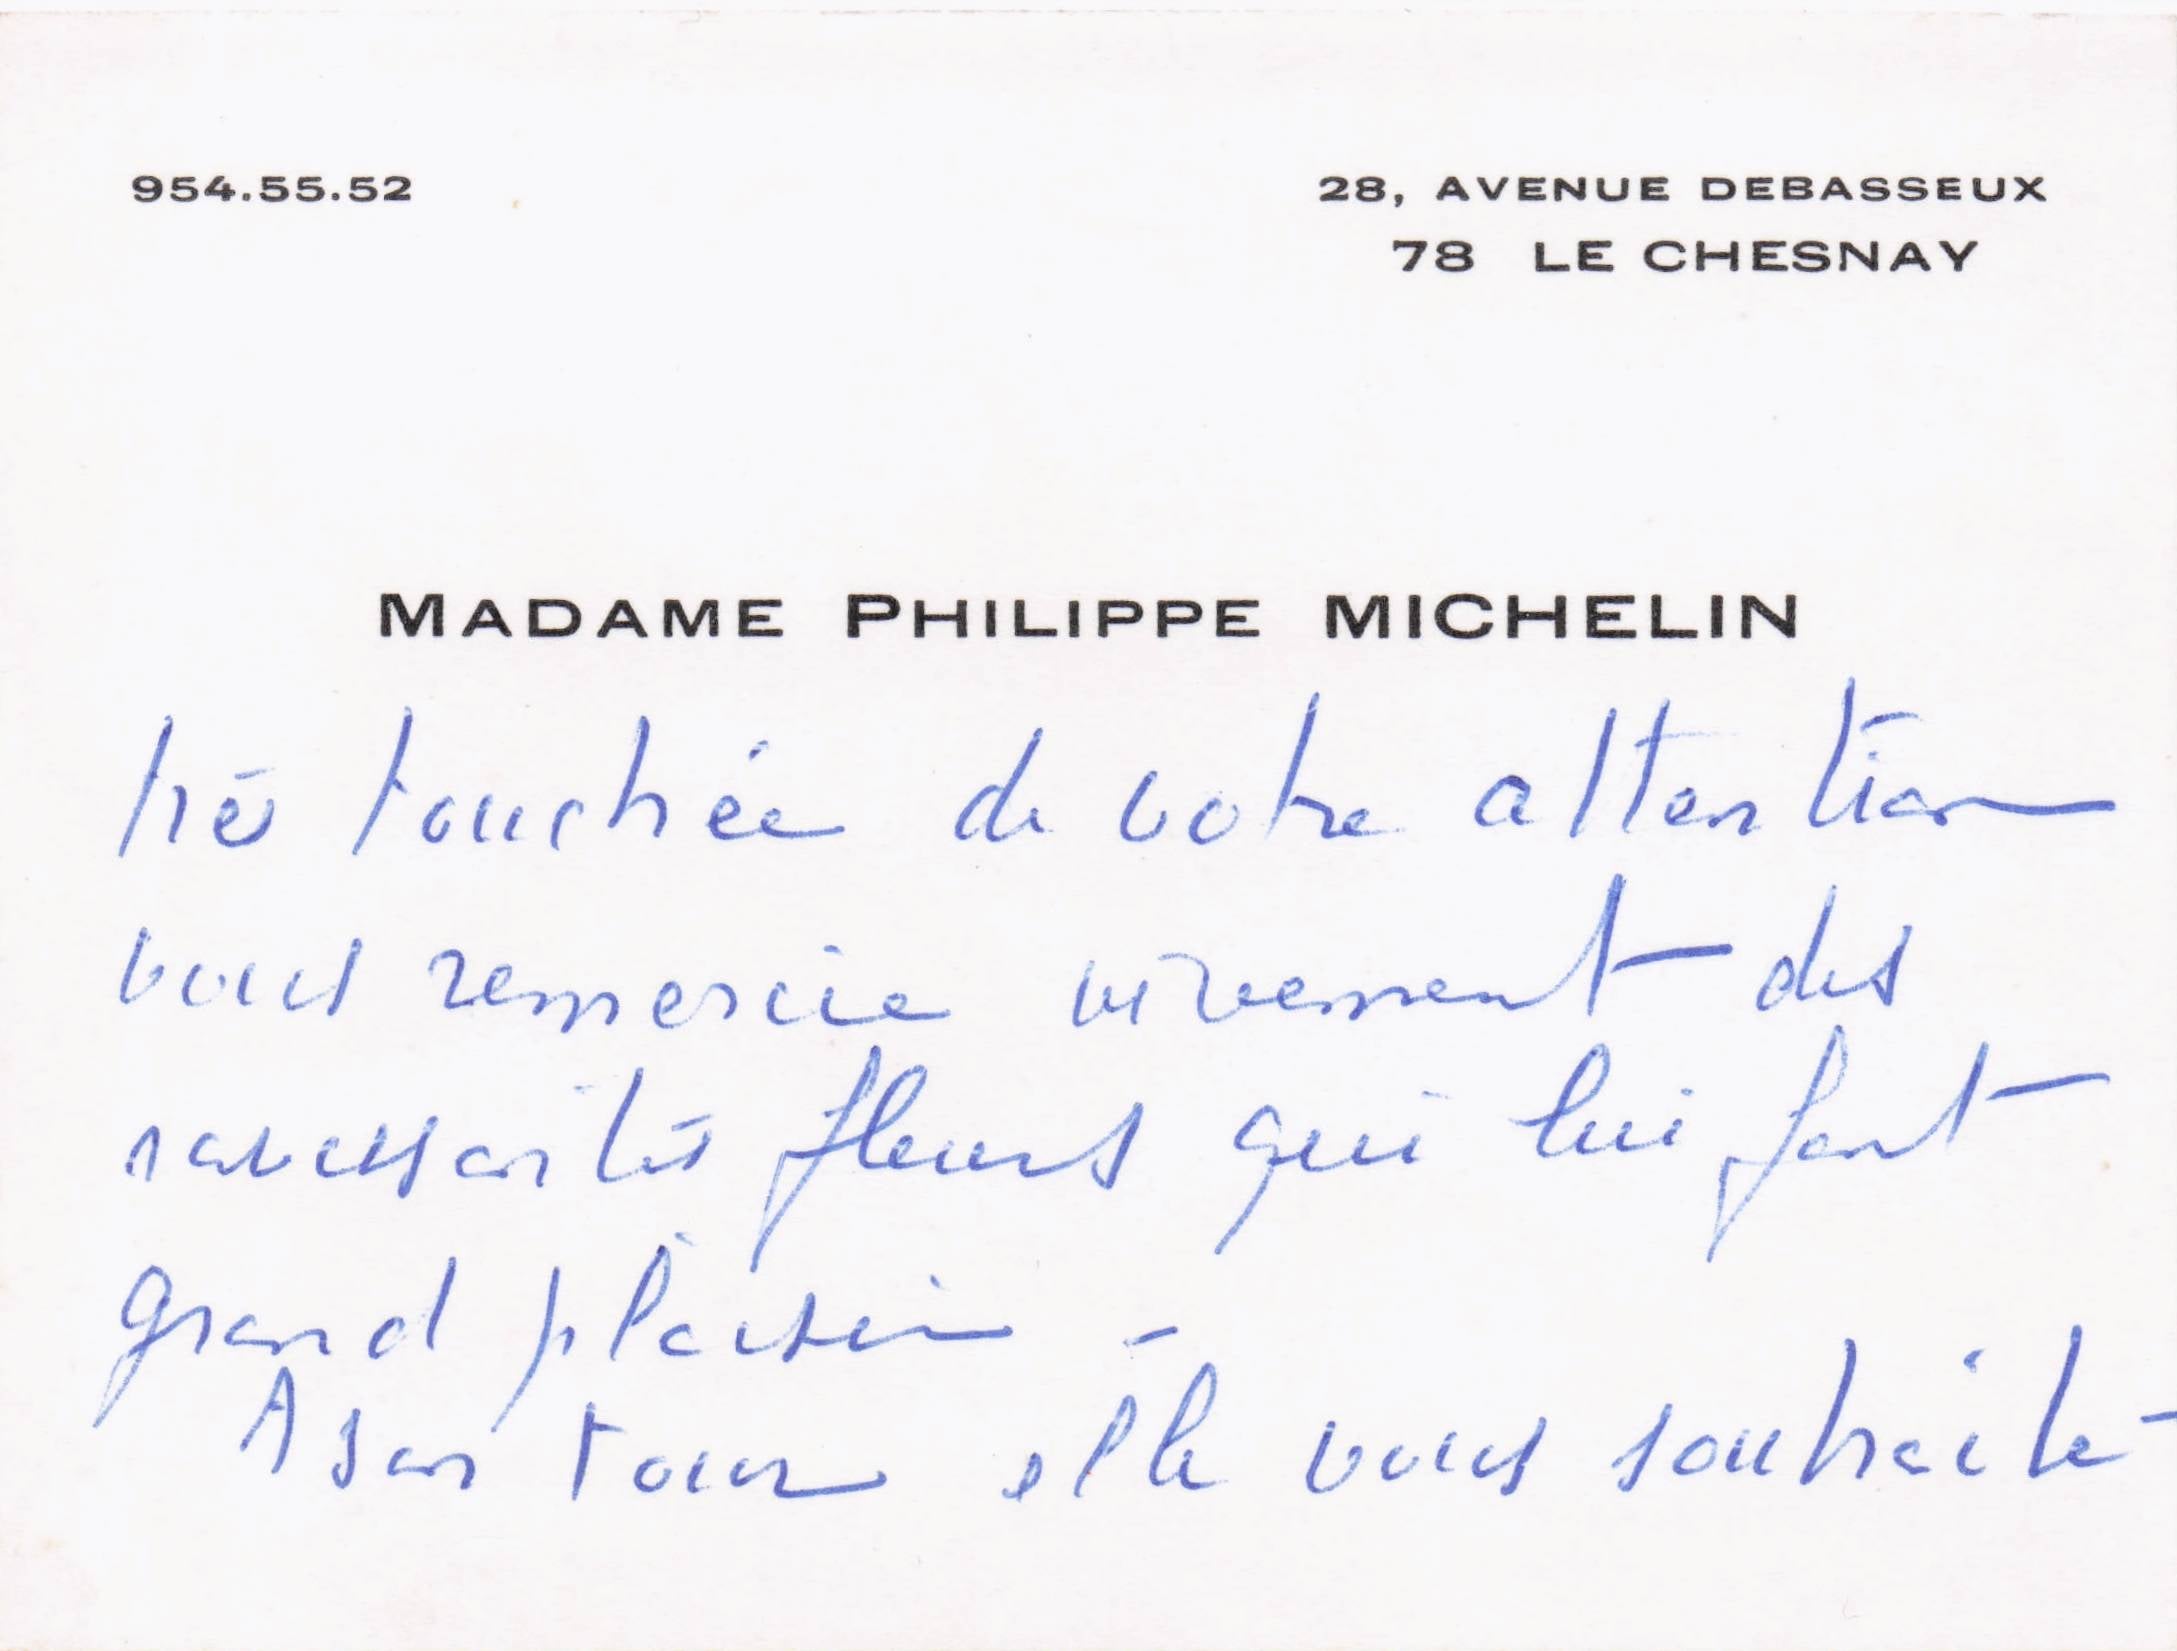 954.55.52
28, AVENUE DEBASSEUX
78 LE CHESNAY
MADAME PHILIPPE MICHELIN
très touchée de votre attention
vous remercie vivement des
ravissantes fleurs qui lui font
grand plaisir -
A son tour elle vous souhaite -